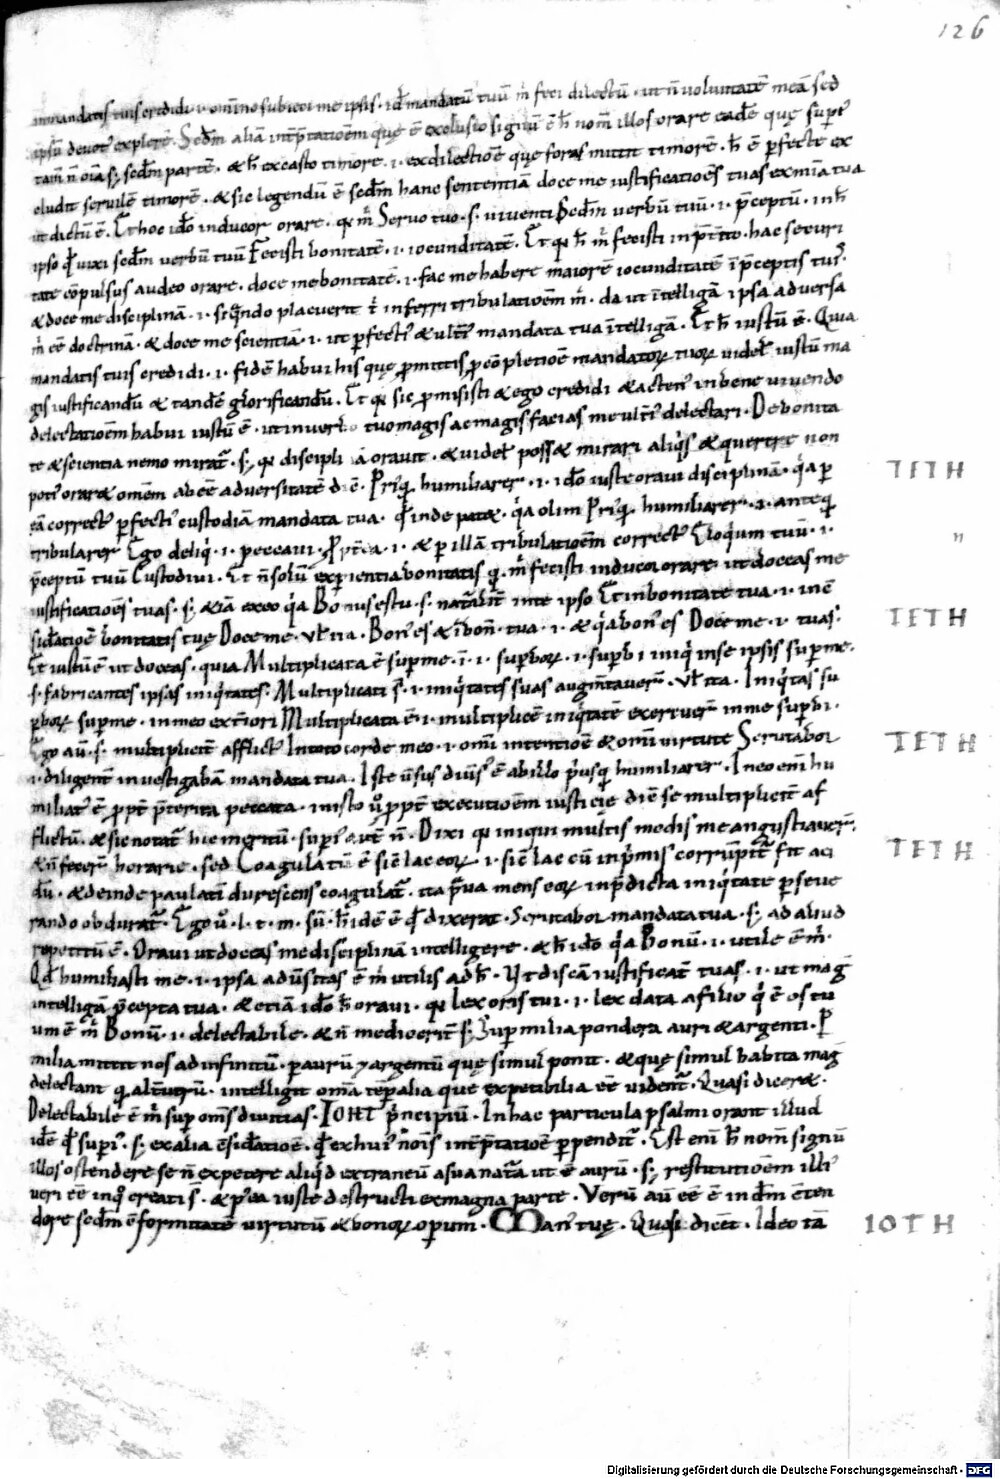 126
in mandatis tuis credidi · i · omnino subieci me ipsis · id mandatū tuū m̄ feci dilectū · ut n̄ voluntatē meā sed
ipsū devot explerē · Sedm̄ aliā intp̄tatioēm quę ē exclusio signū ē h̄ nom̄ illos orare eadē quę supr
tam̄ n̄ oīa s; sedm̄ partē · & h̄ ex casto timore · i · ex dilectioē quę foras mittit timorē · h̄ ē p̄fecte ex
cludit servilē timorē · & sic legendū ē sedm̄ hanc sententiā doce me iustificatioēs tuas ex mīa tua
ut dictū ē · Et hoc ido inducor orare · q m̄ Servo tuo · s · viventi Sedm̄ verbū tuū · i · p̄ceptū · in h̄
ipso qd̄ vixi sedm̄ verbū tuū Fecisti bonitatē · i · iocunditatē · Et q h̄ m̄ fecisti in · hac securi
tate cōpulsus audeo orare · doce me bonitatē · i · fac me habere maiorē iocunditatē ī p̄ceptis tuis
& doce me disciplinā · i · siquando placuerit t̄ inferri tribulatioēm m̄ · da ut ītelligā ipsa adversa
m̄ eē doctrinā · & doce me scientiā · i · ut p̄fecti & ulti mandata tua ītelligā · Et h̄ iustū ē · Quia
mandatis tuis credidi · i · fidē habui his quę p̄mittis p̄ cōpletioē mandatoꝝ tuoꝝ videl iustū ma
gis iustificandū & tandē glorificandū · Et q sic p̄misisti & ego credidi & acten in bene vivendo
delectatioēm habui iustū ē · ut in verbo tuo magis ac magis facias me ulti delectari · De bonita
te & scientia nemo mirat̄ · s; q disciplinā oravit · & videl poss& mirari aliqs & querere non
poti orare omēm abeē adversitatē dicē · Priusq humiliarer · i · ido iuste oravi disciplinā · qa p
eā correct p̄fecti custodiā mandata tua · qd̄ inde pat& · qa olim Priusq humiliarer · i · anteq
tribularer Ego deliqi · i · peccavi · Propt̄ea · i · & p illā tribulatioēm correct Eloquium tuū · i ·
p̄ceptū tuū Custodivi · Et n̄ solū experientia bonitatis q m̄ fecisti inducor orare ut doceas me
iustificatioēs tuas · s; & iā exeo qa Bonus es tu · s · natalit in te ipso Et in bonitate tua · i · in cē
sideratioē bonitatis tuę Doce me · vl ita · Bon es & ī bon · tua · i · & qa bon es Doce me · i · tuas ·
Et iustū ē ut doceas · quia Multiplicata ē sup me · ī · i · supboꝝ · i · supbi iniqi in se ipsis sup me ·
s · fabricantes ipsas iniqtates · Multiplicati s̄ · i · iniqtates suas augm̄taver · vl ita · Iniqtas su
pboꝝ sup me · in meo ext̄iori Multiplicata ē · i · multiplicē iniqtatē exercuer in me supbi ·
Ego au · s · multiplicit afflict In toto corde meo · i · omī intentioē & omī virtute Scrutabor
i · diligent investigabā mandata tua · Iste v̄sus divīs ē ab illo p̄usq humiliarer · In eo enī hu
miliat ē ppt̄ p̄terita peccata · in isto v̊ ppt̄ executioēm iusticie diē se multiplicit af
flictū · & sic notat̄ hic meritū · supi aut n̄ · Dixi q iniqui multis modis me angustiaver ·
& n̄ fecer h̄ orare · sed Coagulatū ē sic lac eoꝝ · i · sic lac cū in p̄mis corrupt̄ fit aci
dū · & deinde paulatī durescens coagulat̄ · ita p̄va mens eoꝝ in p̄dicta iniqtate pseve
rando obdurat̄ · Ego v̊ · l · t · m · sū · h̄ idē ē qd̄ dixerat · Scrutabor mandata tua · s; ad aliud
repetitū ē · Oravi ut doceas me disciplinā intelligere · & h̄ ido qa Bonū · i · utile ē m̄ ·
Qd̄ humiliasti me · i · ipsa adūsitas ē m̄ utilis ad h̄ · Ut discā iustificat tuas · i · ut mag
intelligā p̄cepta tua · & etiā ido h̄ oravi · q lex oris tui · i · lex data a filio q ē os tu
um ē m̄ Bonū · i · delectabile · & n̄ mediocrit s; Sup milia pondera auri & argenti · P
milia mittit nos ad infinitū · p aurū & argentū quę simul ponit · & quę simul habita mag
delectant q alt̄utrū · intelligit omīa tēpalia que expetibilia eē vident̄ · Quasi dicere ·
Delectabile ē m̄ sup omīs divitias · IOHT p̄ncipiū · In hac particula psalmi orant illud
idē qd̄ supi · s; ex alia ēsidatioē · qd̄ ex hui noīs intp̄tatioē ppendit̄ · Est enī h̄ nom̄ signū
illos ostendere se n̄ expetere aliqd extraneū a sua nata ut ē aurū · s; restitutioēm illi
veri eē in quo creati s̄ · & p ea iuste destructi ex magna parte · Verū au eē ē in dm̄ ēten
dere sedm̄ ēformitatē virtutū & bonoꝝ operum · Man tuę · Quasi dicēt · Ideo tā
TETH
TETH
TETH
TETH
IOTH
Digitalisierung gefördert durch die Deutsche Forschungsgemeinschaft - DFG